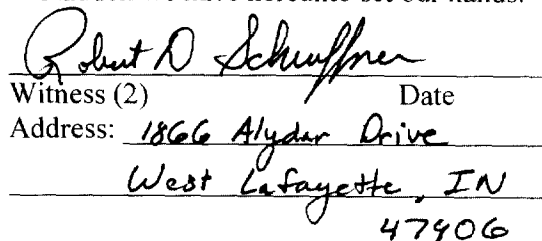 have hereunto set our hands.
Robert D
Witness (2) Date
Address: 1866 Alydar Drive
West Lafayette, IN
47906